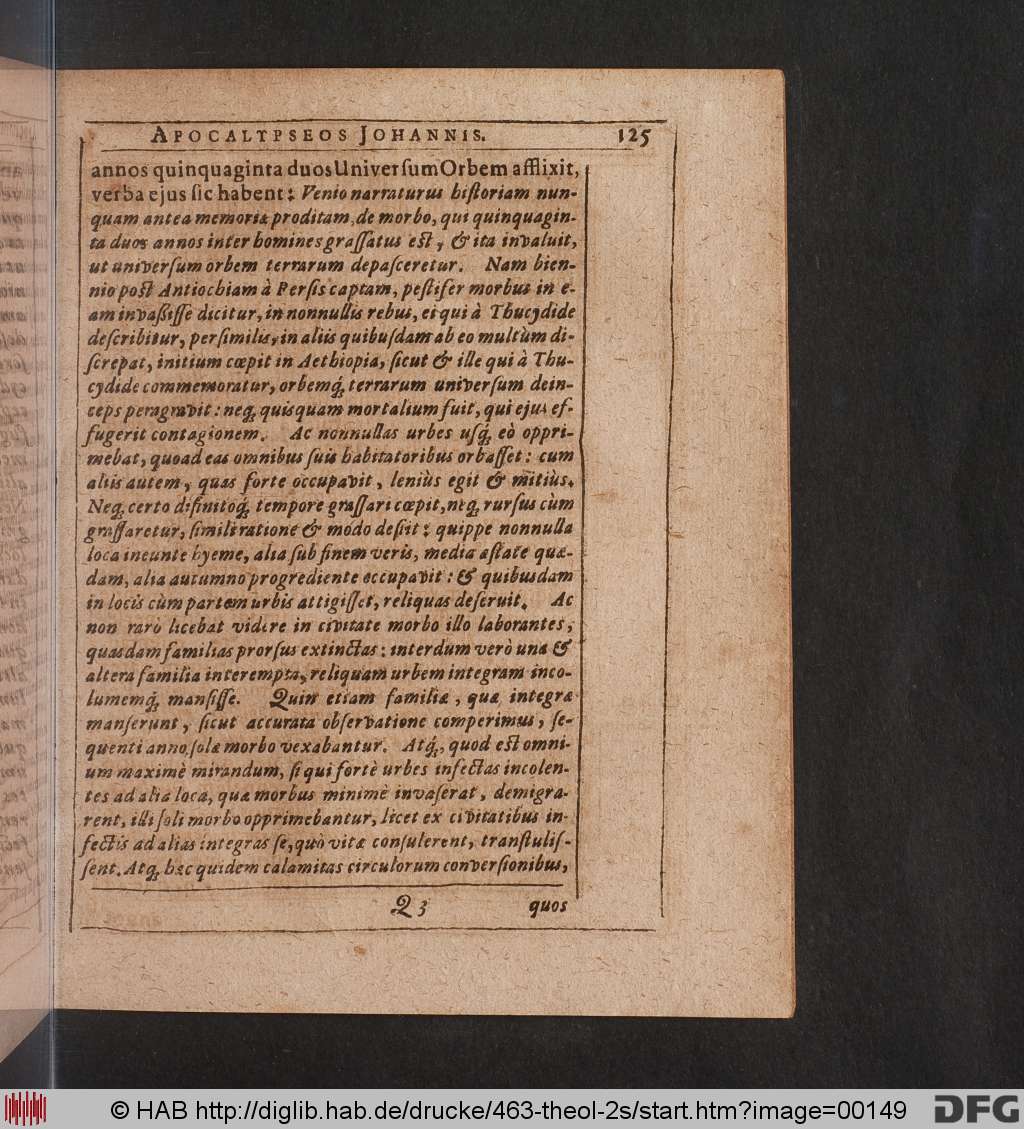 APOCALYPSEOS JOHANNIS. 125
annos quinquaginta duos Univerſum Orbem afflixit,
verba ejus ſic habent: Venio narraturus hiſtoriam nun-
quam antea memoriæ proditam, de morbo, qui quinquagin-
ta duos annos inter homines graſſatus eſt, & ita invaluit,
ut univerſum orbem terrarum depaſceretur. Nam bien-
nio poſt Antiochiam à Perſis captam, peſtifer morbus in e-
am invaſiſſe dicitur, in nonnullis rebus, ei qui à Thucydide
deſcribitur, perſimilis, in aliis quibuſdam ab eo multùm di-
ſcrepat, initium cœpit in Aethiopia, ſicut & ille qui à Thu-
cydide commemoratur, orbemq́; terrarum univerſum dein-
ceps peragravit: neq́; quisquam mortalium fuit, qui ejus ef-
fugerit contagionem. Ac nonnullas urbes uſq́; eò oppri-
mebat, quoad eas omnibus ſuis habitatoribus orbaſſet: cum
aliis autem, quas forte occupavit, leniùs egit & mitiùs.
Neq́; certo difinitoq́; tempore graſſari cœpit, neq́; rurſus cùm
graſſaretur, ſimili ratione & modo deſiit: quippe nonnulla
loca ineunte hyeme, alia ſub finem veris, media æſtate quæ-
dam, alia autumno progrediente occupavit: & quibusdam
in locis cùm partem urbis attigiſſet, reliquas deſeruit. Ac
non rarò licebat videre in civitate morbo illo laborantes,
quasdam familias prorſus extinctas: interdum verò una &
altera familia interempta, reliquam urbem integram inco-
lumemq́; manſiſſe. Quin etiam familiæ, quæ integræ
manſerunt, ſicut accurata obſervatione comperimus, ſe-
quenti anno, ſolæ morbo vexabantur. Atq́;, quod eſt omni-
um maximè mirandum, ſi qui fortè urbes infectas incolen-
tes ad alia loca, quæ morbus minimè invaſerat, demigra-
rent, illi ſoli morbo opprimebantur, licet ex civitatibus in-
fectis ad alias integras ſe, quò vitæ conſulerent, tranſtuliſ-
ſent. Atq́; hæc quidem calamitas circulorum converſionibus,
Q 3 quos
© HAB http://diglib.hab.de/drucke/463-theol-2s/start.htm?image=00149 DFG